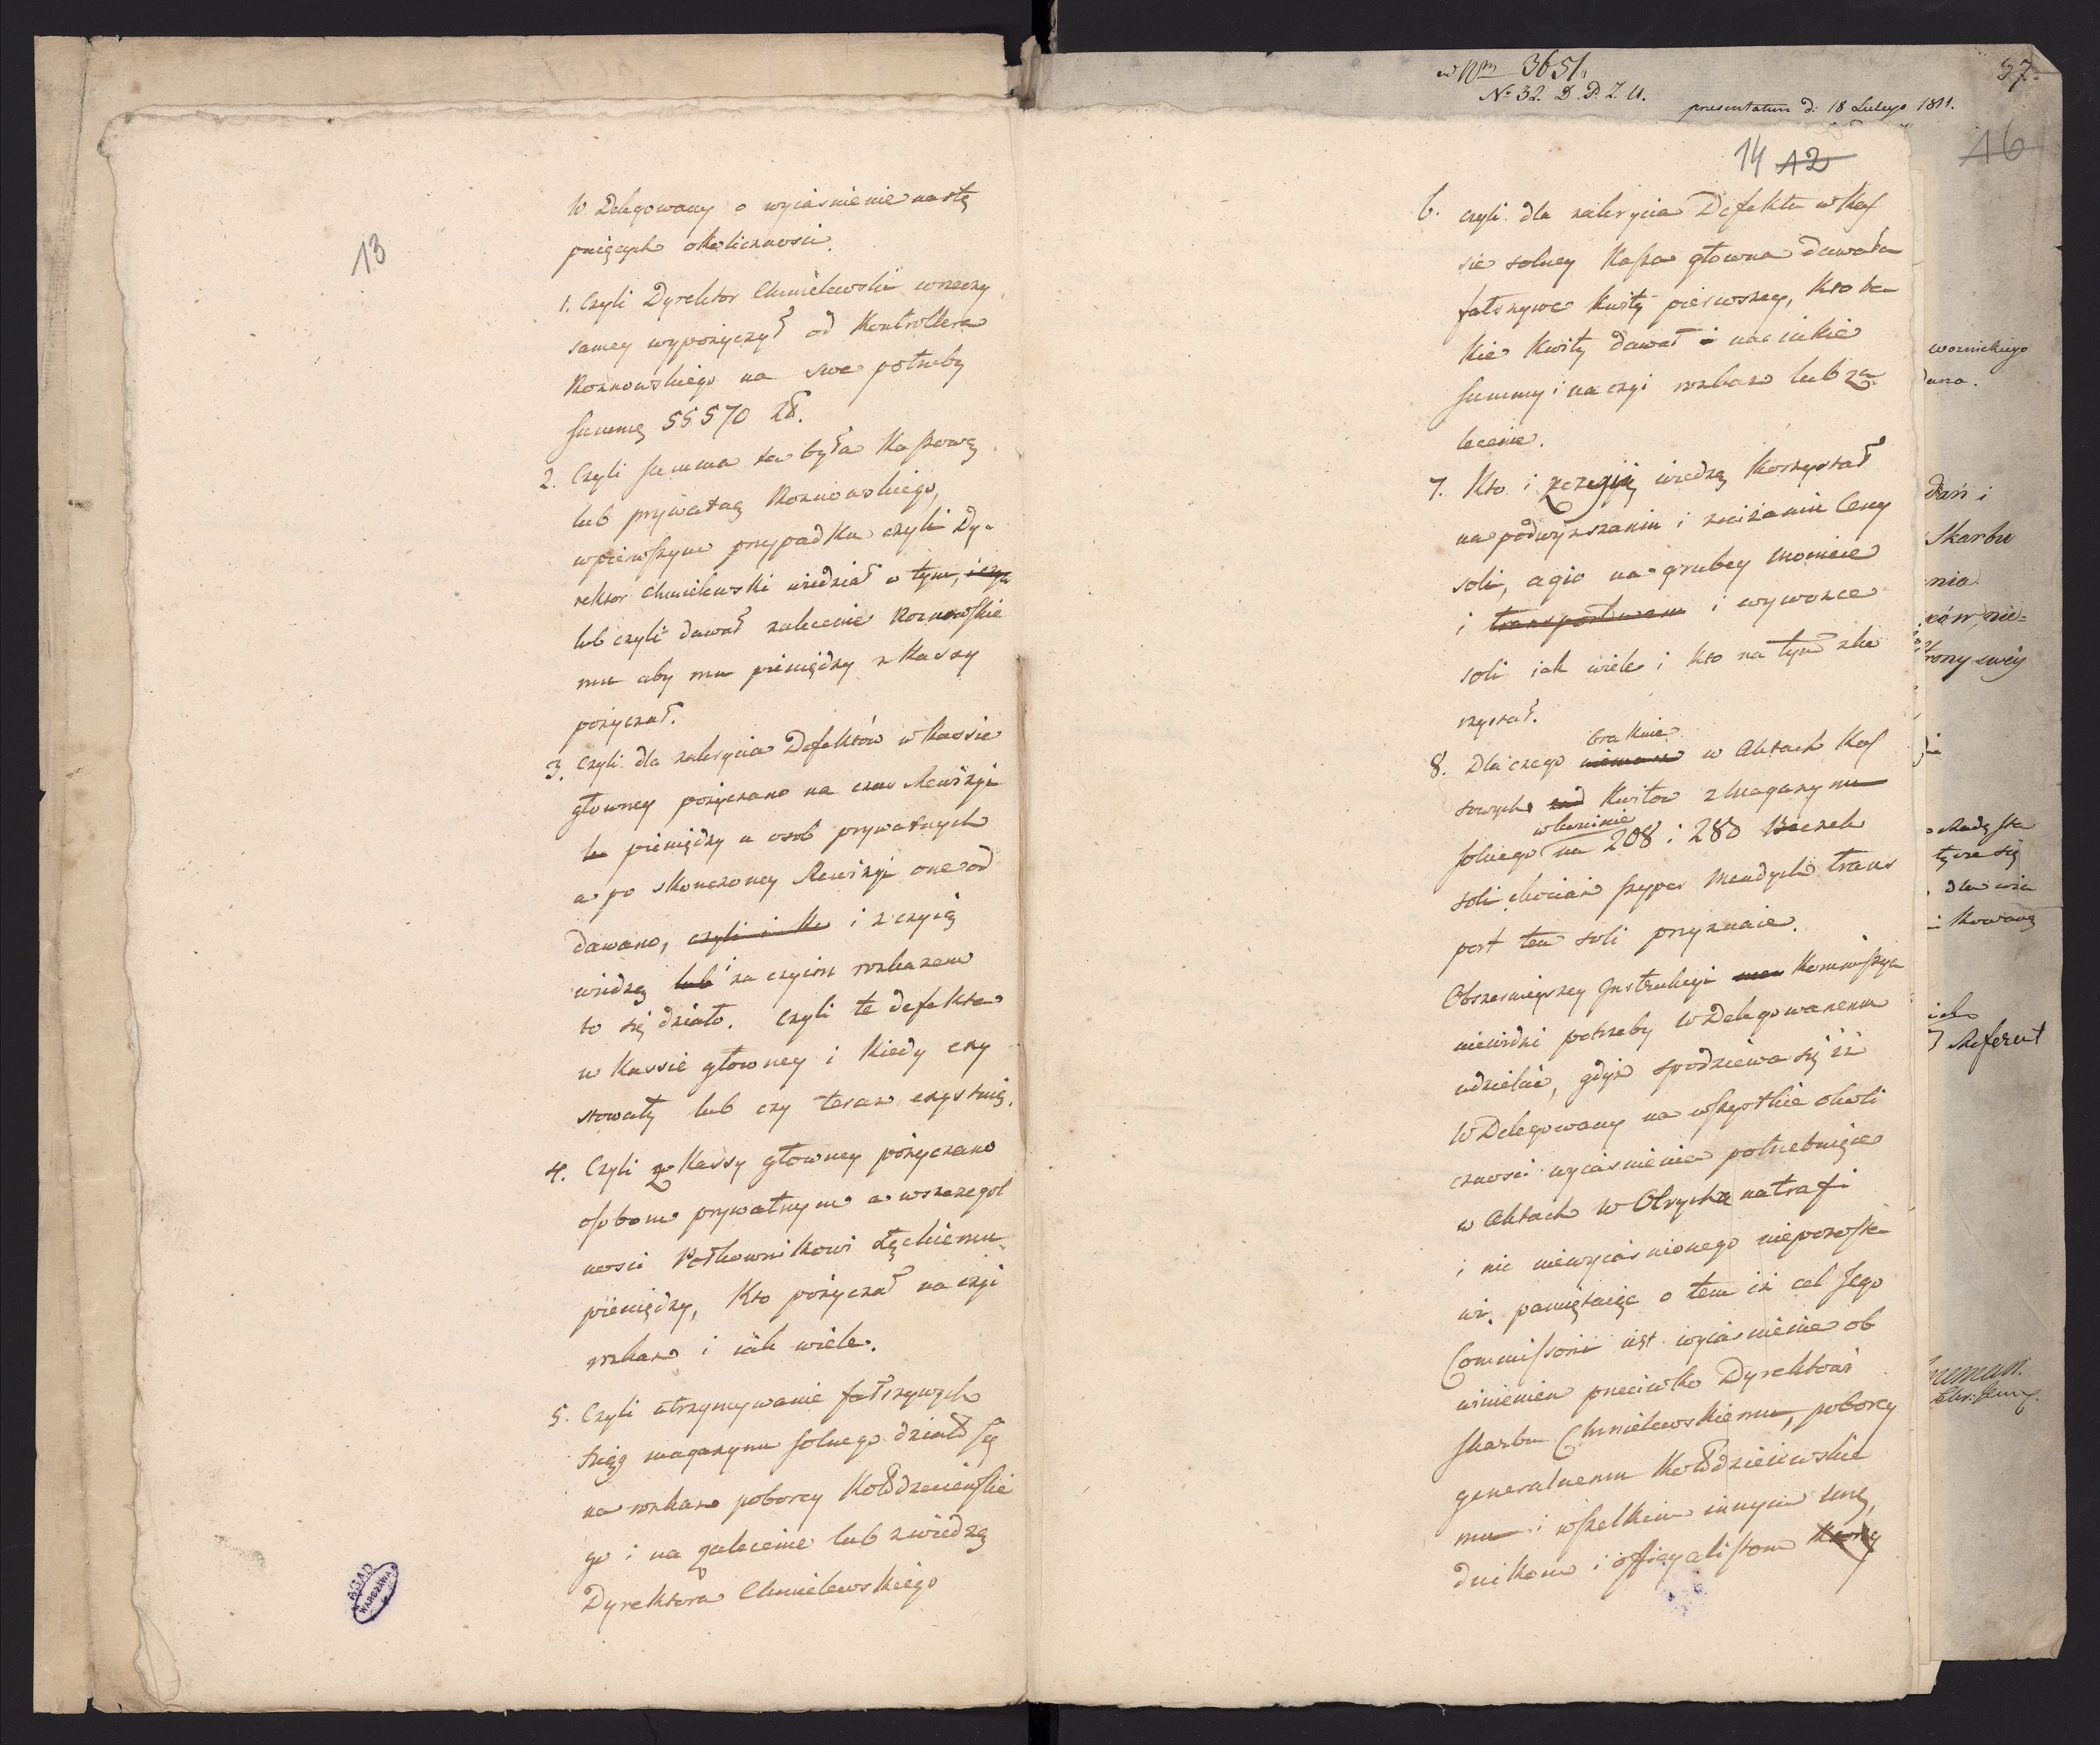 13
W. Delegowany o wyiasnienie nastę
puiących okolicznosci.
1. Czyli Dyrektor Chmielewski wrzeczy
samey wypożyczył od Kontrollera
Roznowskiego na swe potrzeby
summę 55570 zł.
2. Czyli summa ta była Kassową
lub prywatną Roznowskiego,
wpierwszym przypadku czyli Dy-
rektor Chmielewski wiedział o tym, i czy
lub czyli dawał zalecenie Roznowskie
mu aby mu pieniędzy z Kassy
pożyczał.
3. Czyli dla zakrycia Defektów w Kassie
głowney pożyczano na czas Rewizyi
pieniędzy u osob prywatnych
a po skonczoney Rewizyi one od
dawano, czyli i i z czyią
wiedzą lub i za czyim rozkazem
to się działo. Czyli te defekta
w Kassie głowney i kiedy exy
stowały lub czy teraz exystuią.
4. Czyli z Kassy głowney pożyczano
osobom prywatnym a wszczegol
nosci Półkownikowi Łąckiemu
pieniędzy, Kto pożyczał na czyi
rozkaz i iak wiele.
5. Czyli utrzymywanie fałszywych
Xiąg magazynu solnego działo się
na rozkaz poborcy Kołdzieiewskie
go i na zalecenie lub z wiedzą
Dyrektora Chmielewskiego
AGAD
WARSZAWA
w Nm 3651.
No 32. D. P. Z. U.
presentatum d: 18 Lutego 1811.
37.
14 12
16
6. czyli dla zakrycia Defektu w Kas
sie solney Kassa głowna dawała
fałszywe kwity pierwszey, Kto ta
kie Kwity dawał i na iakie
summy i na czyi rozkaz lub za
lecenie.
7. Kto i z czyią wiedzą korzystał
na podwyższaniu i zniżaniu Ceny
soli, agio na grubey monecie
i transportwem i wywozce
soli iak wiele i kto na tym sko
rzystał.
8. Dla czego niemasz brakuie w Aktach Kas
sowych Kwitow z Magazynu
solnego w Koninie na 208 i 280 Beczek
soli chociaż szyper Mendych trans
port ten soli przyznaie.
Obszernieyszey Instrukcyi Kommissya
niewidzi potrzeby W Delegowanemu
udzielać, gdyż spodziewa się iż
W Delegowany na wszystkie okoli
cznosci wyiasnienia potrzebuiące
w Aktach w Olrychu natrafi
i nic niewyiasnionego niepozosta
wi, pamiętaiąc o tem iż cel Jego
Commissorii iest wyiasnienie ob
winienia przeciwko Dyrektowi
skarbu Chmielewskiemu, poborcy
generalnemu Kołdzieiewskie
mu i wszelkim innym Urzę,
dnikom i officyalistom
wornickiego
dano.
dań i
Skarbu
nia
ków, nie=
trony swéy
tycze się
dla wia
Referent